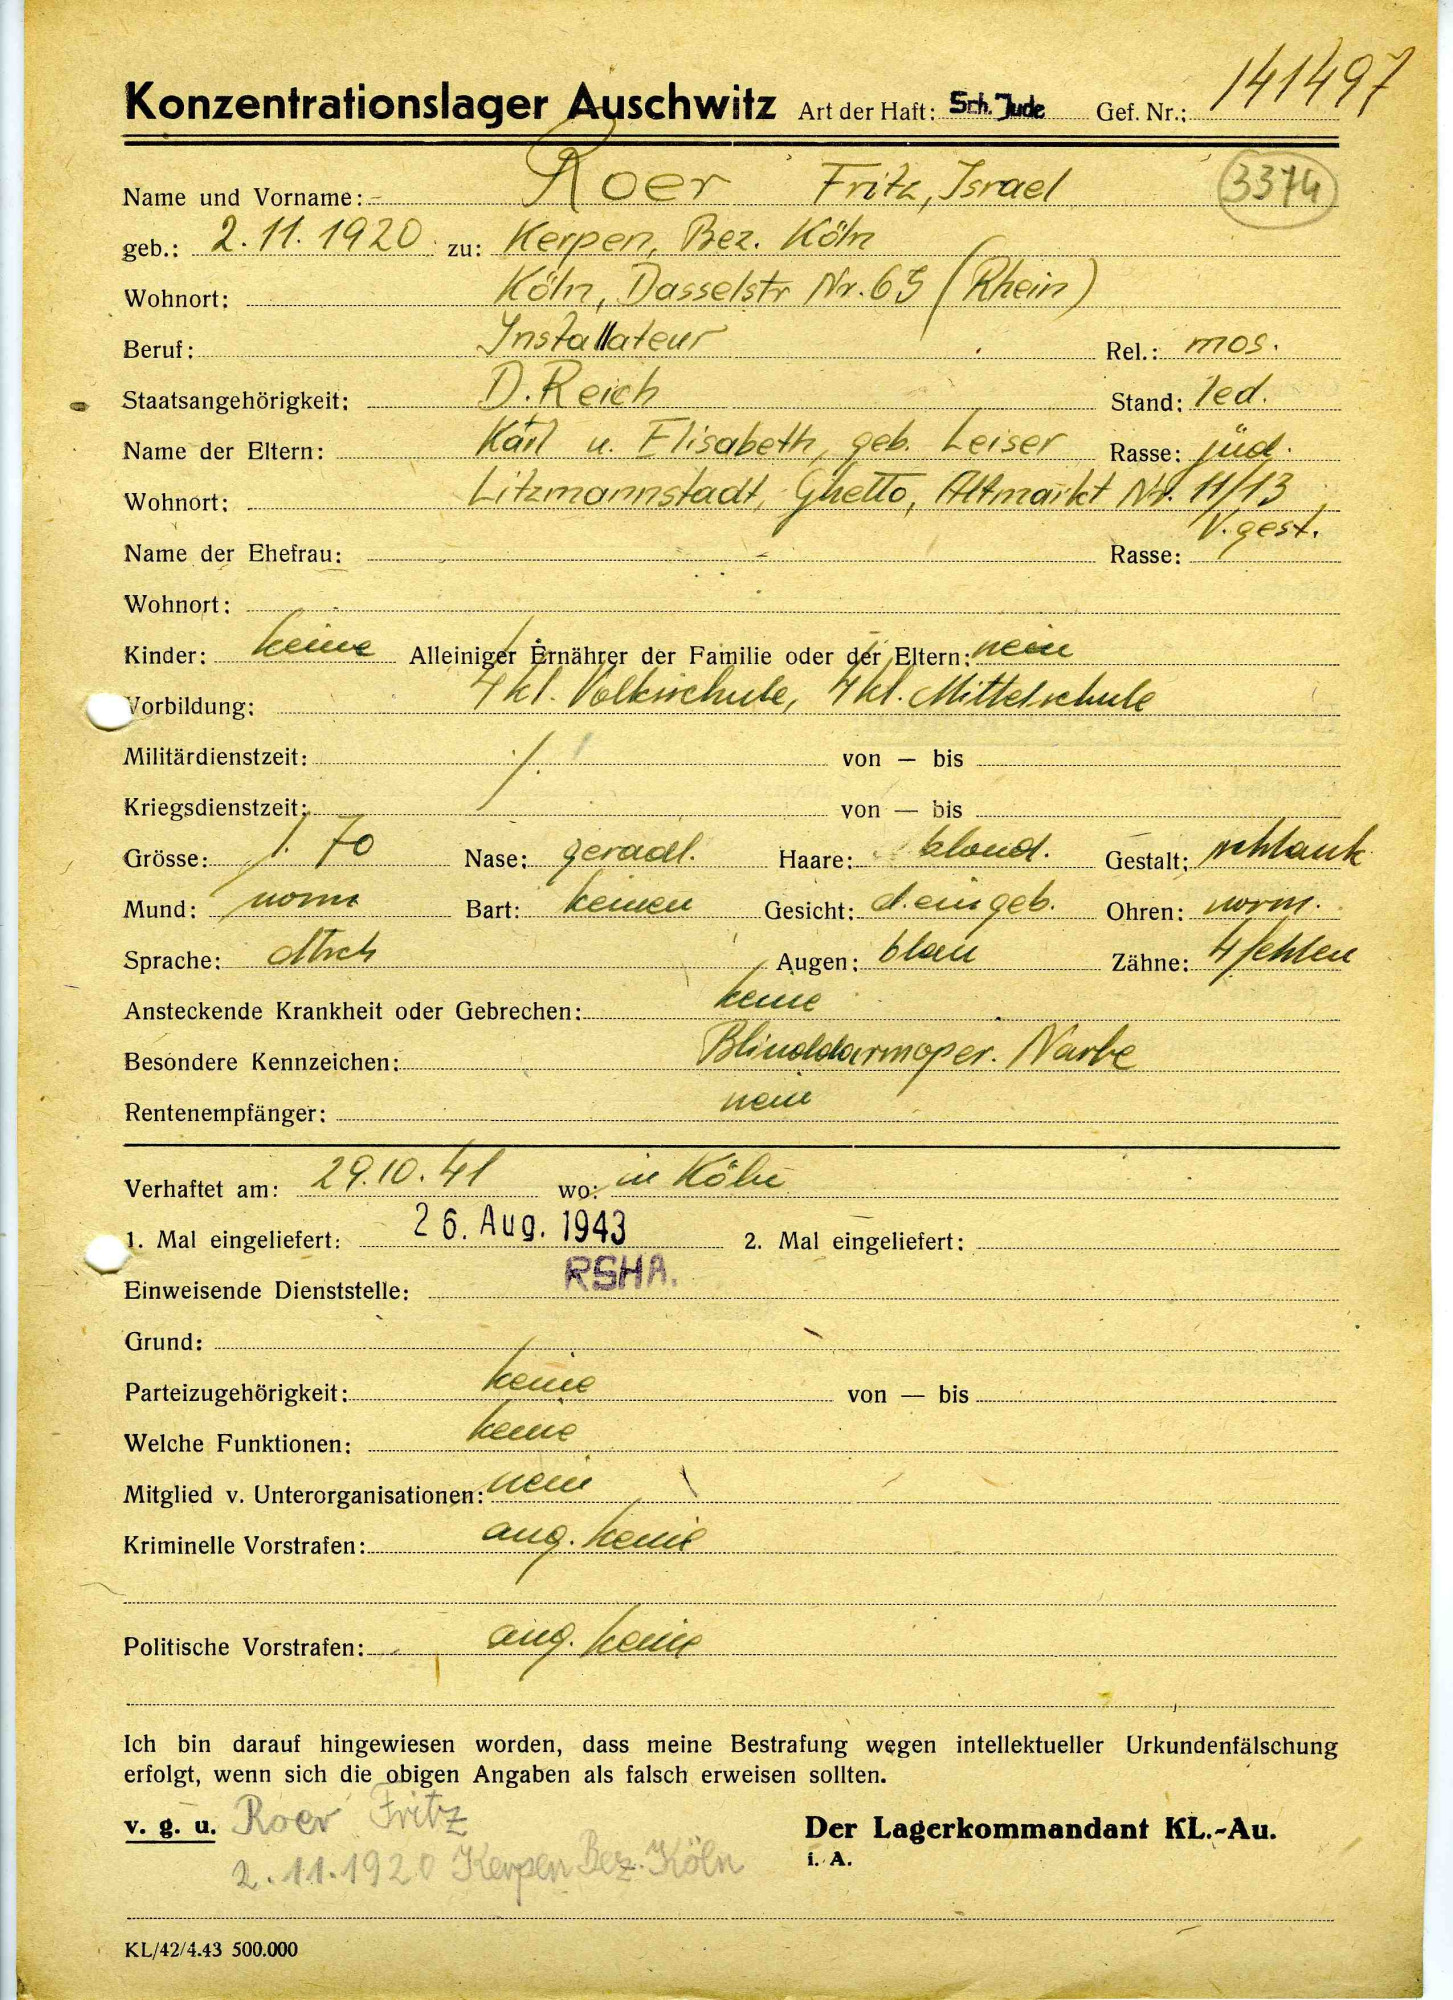 Konzentrationslager Auschwitz Art der Haft: Sch. Jude Gef. Nr.: 141497
Name und Vorname: Roer Fritz, Israel 3374
geb.: 2. 11. 1920 zu: Kerpen, Bez. Köln
Wohnort: Köln, Dasselstr Nr. 69 (Rhein)
Beruf: Installateur Rel.: mos.
Staatsangehörigkeit: D. Reich Stand: led.
Name der Eltern: + Karl u. Elisabeth, geb. Leiser Rasse: jüd.
Wohnort: Litzmannstadt, Ghetto, Altmarkt Nr. 11/13
V. gest.
Name der Ehefrau: - Rasse:
Wohnort:
Kinder: keine Alleiniger Ernährer der Familie oder der Eltern: nein
Vorbildung: 4 kl. Volksschule, 4 kl. Mittelschule
Militärdienstzeit: ./. von — bis
Kriegsdienstzeit: von — bis
Grösse: 1. 70 Nase: geradl. Haare: blond. Gestalt: schlank
Mund: norm Bart: keinen Gesicht: Ohren: norm.
Sprache: dtsch Augen: blau Zähne: 4 fehlen
Ansteckende Krankheit oder Gebrechen: keine
Besondere Kennzeichen: Blinddarmoper. Narbe
Rentenempfänger: nein
Verhaftet am: 29.10.41 wo: in Köln
1. Mal eingeliefert: 26. Aug. 1943 2. Mal eingeliefert:
Einweisende Dienststelle: RSHA.
Grund:
Parteizugehörigkeit: keine von — bis
Welche Funktionen: keine
Mitglied v. Unterorganisationen: nein
Kriminelle Vorstrafen: ang. keine
Politische Vorstrafen: ang. keine
Ich bin darauf hingewiesen worden, dass meine Bestrafung wegen intellektueller Urkundenfälschung
erfolgt, wenn sich die obigen Angaben als falsch erweisen sollten.
v. g. u. Roer Fritz Der Lagerkommandant KL.-Au.
2. 11. 1920 Kerpen Bez. Köln i. A.
KL/42/4.43 500.000